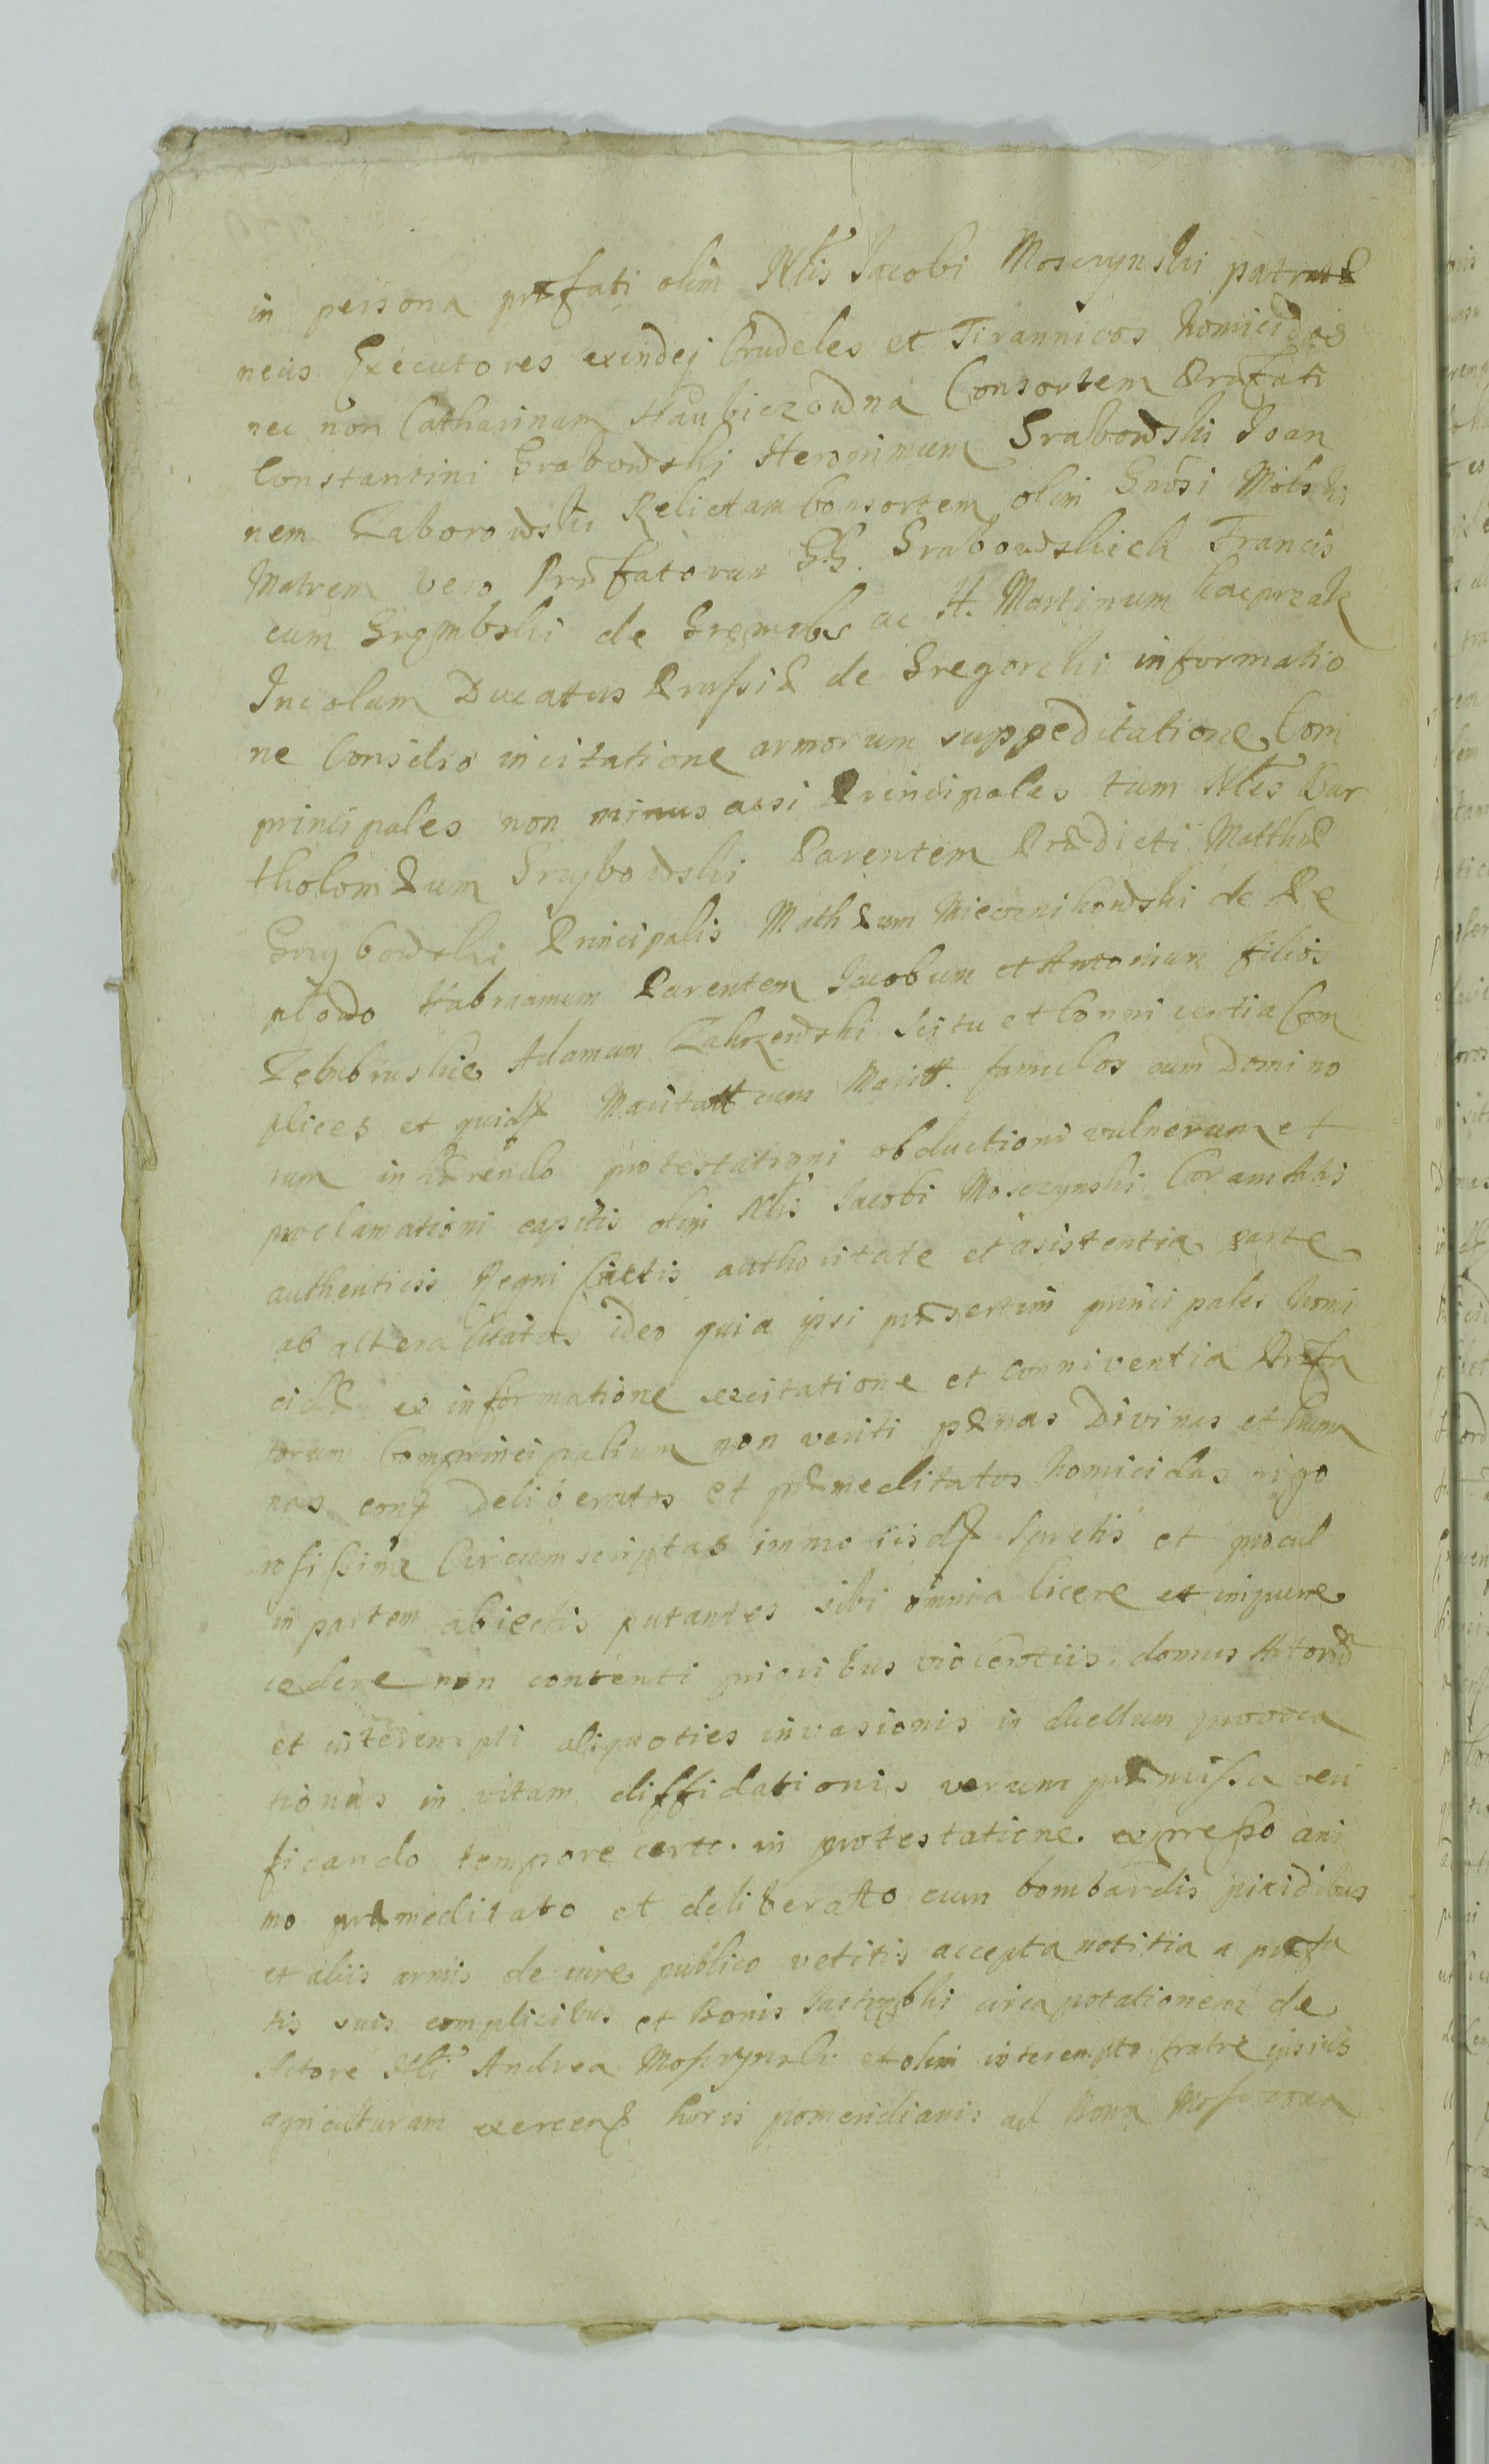 in persona præfati olim Nlis Jacobi Moszczynski patratæ
necis Executores exindeq Crudeles et Tirannicos homicidas
nec non Catharinam Haubiczowna Consortem Præfati
Constantini Grabowski Heronimum Grabowski Joan
nem Zaborowski Relictam Consortem olim Gnosi Molski
Matrem vero Præfatorum G.G. Grabowskich Francis
cum Grembski de ac H. Martinum Kacprzak
Incolam Ducatus Prussiæ de Gregorki informatio
ne Consilio incitatione armorum suppeditatione Com
principales non minus acsi Principales tum Nles Bar
tholomæum Grzybowski Parentem Prædicti Matthæ
Grzybowski Principalis Mathæum Miecznikowski de Re
plowo Habraamum Parentem Jacobum et Antonium filios
Adamum Zakrzewski scitu et conniventia Com
plices et quidq cum famulos cum Domino
rum inhærendo protestationi obductioni vulnerum et
proclamationi capitis olim Nlis Jacobi Moszczynski Coram
authenticis Regni authoritate et asistentia parte
ab altera citatos ideo quia ipsi præsertim principales homi
cidæ ex informatione excitatione et conniventia Præfa
torum Comprincipalium non veriti pænas Divinas et huma
nas conq deliberatos et præmeditatos homicidas rigo
rosissime Circumscriptas immo iisdq spretis et procul
in partem abiectis putantes sibi omnia licere et impune
cedere non contenti prioribus violentiis domus Actoris
et interempti aliquoties invasionis in duellum provoca
tionis in vitam diffidationis verum præmissa veri
ficando tempore certo in protestatione expresso ani
mo præmeditato et deliberatto cum bombardis pixidibus
et aliis armis de iure publico vetitis accepta notitia a præfa
tis suis complicibus et Bonis Jastrzębki circa potationem de
Actore Nli Andrea Moszczynski et olim interempto fratre ipsius
agriculturam exercenq horis pomeridianis ad Bona